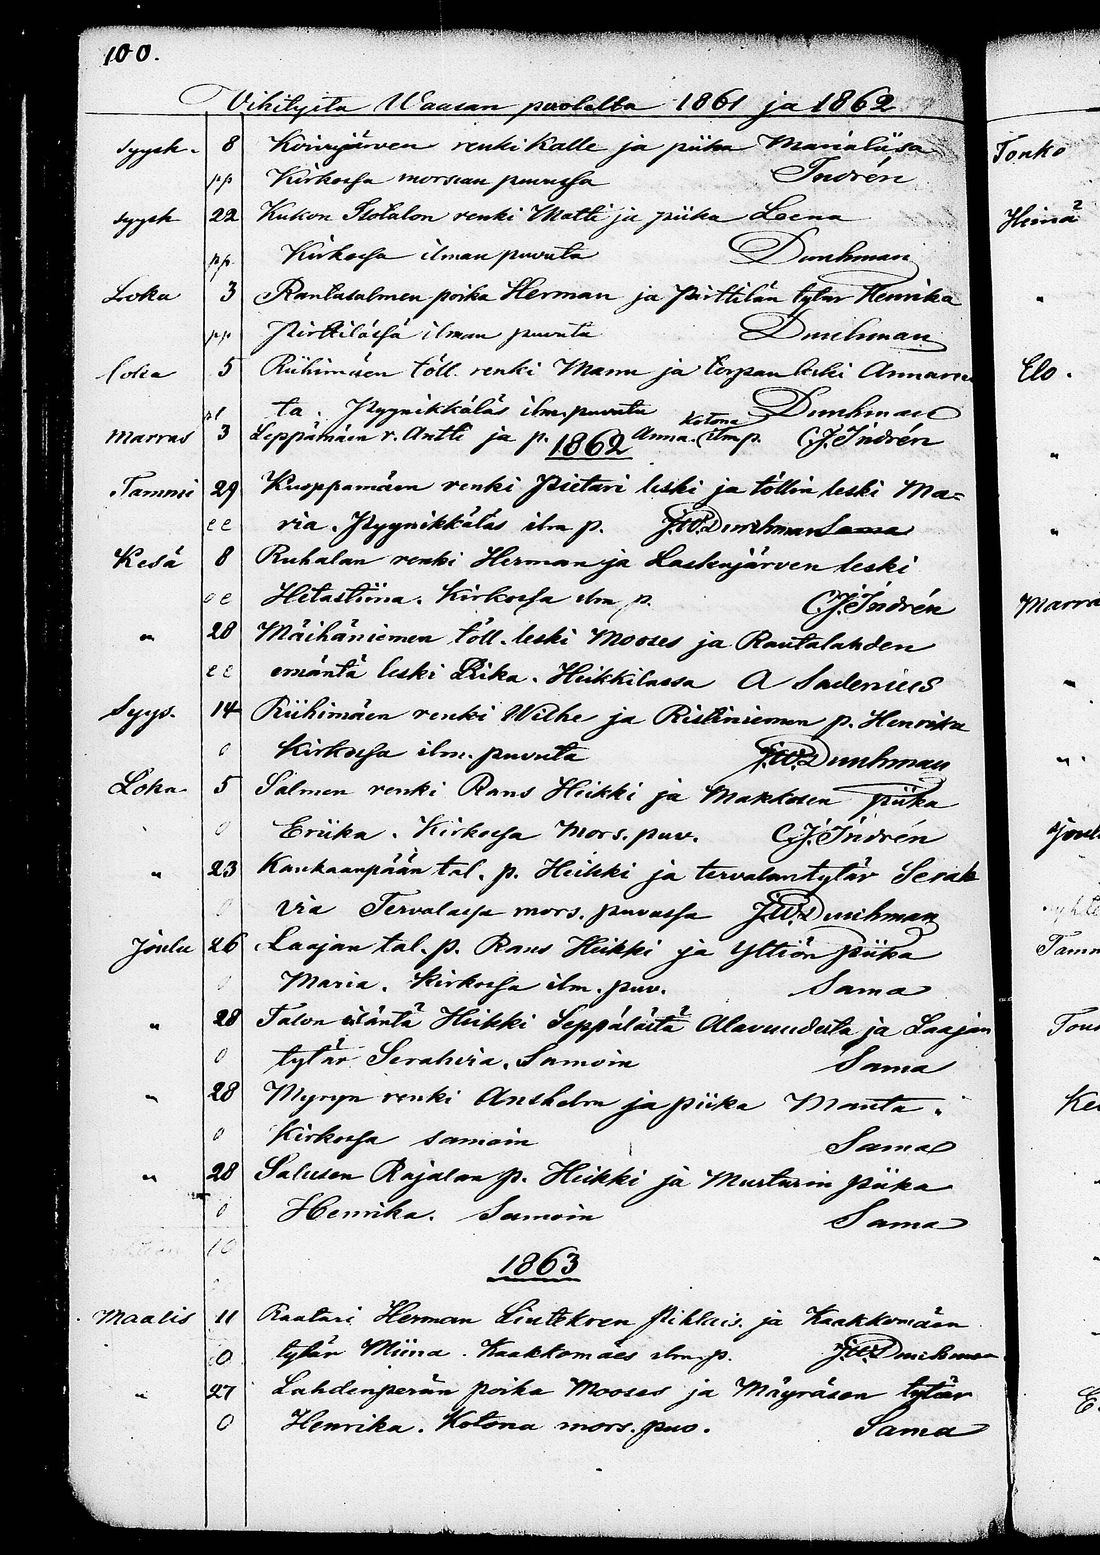 100.
Vihityitä Waasan puolelta 1861 ja 1862
syysk. 8 Koirijärven renki Kalle ja piika Marialiisa
pp Kirkossa morsian puvussa Indrén
syysk 22 Kukon Isotalon renki Matti ja piika Leena
pp. Kirkossa ilman puvuta Dunchman
Loka 3 Rantasalmen poika Herman ja Pirttilän tytär Henrika
pp Pirttilässä ilman puvuta Dunchman
loka 5 Riihimäen töll. renki Manu ja torpan leski Annama
ta. Pyynikkäläs ilm. puvuta Dunchman
Marras 3 Leppämäen r. Antti ja p. Anna. Kotona ilm p. C.J. Indrén
1862
Tammi 29 Kuoppamäen renki Pietari leski ja töllin leski Ma=
ee ria. Pyynikkäläs ilm p. J.W. Dunchman Sama
Kesä 8 Ruhalan renki Herman ja Laskenjärven leski
ee Hetastiina. Kirkossa ilm p. C.J. Indrén
" 28 Mäihäniemen töll. leski Mooses ja Rautalahden
ee emäntä leski Liika. Heikkilässä A Sadenius
Syys. 14 Riihimäen renki Wilhe ja Ristiniemen p. Henrika
0 Kirkossa ilm. puvuta J.W. Dunchman
Loka 5 Salmen renki Rans Heikki ja Makkosen piika
0 Eriika. Kirkossa Mors. puv. C.J. Indrén
" 23 Kankaanpään tal. p. Heikki ja tervalan tytär Serah
0 via Tervalassa mors. puvussa J.W. Dunchman
Joulu 26 Laajan tal. p. Rans Heikki ja Yltiön piika
0 Maria. Kirkossa ilm. puv. Sama
" 28 Talon isäntä Heikki Seppälästä Alavuudesta ja Laajan
0 tytär Serahvia. Samoin Sama
" 28 Myryn renki Anshelm ja piika Manta.
0 Kirkossa samoin Sama
" 28 Salusen Rajalan p. Heikki ja Murturin piika
0 Henrika. Samoin Sama
10
1863
Maalis 11 Raatari Herman Lintekren Pihlais. ja Kaakkomäen
0 tytär Miina. Kaakkomäes ilm. p. J.W. Dunchman
" 27 Lahdenperän poika Mooses ja Mäyräsen tytär
0 Henrika. Kotona mors. puv. Sama
Touko
Heinä
"
Elo.
"
"
Marra
"
"
Joul
Tamm
Tou
Ke
E